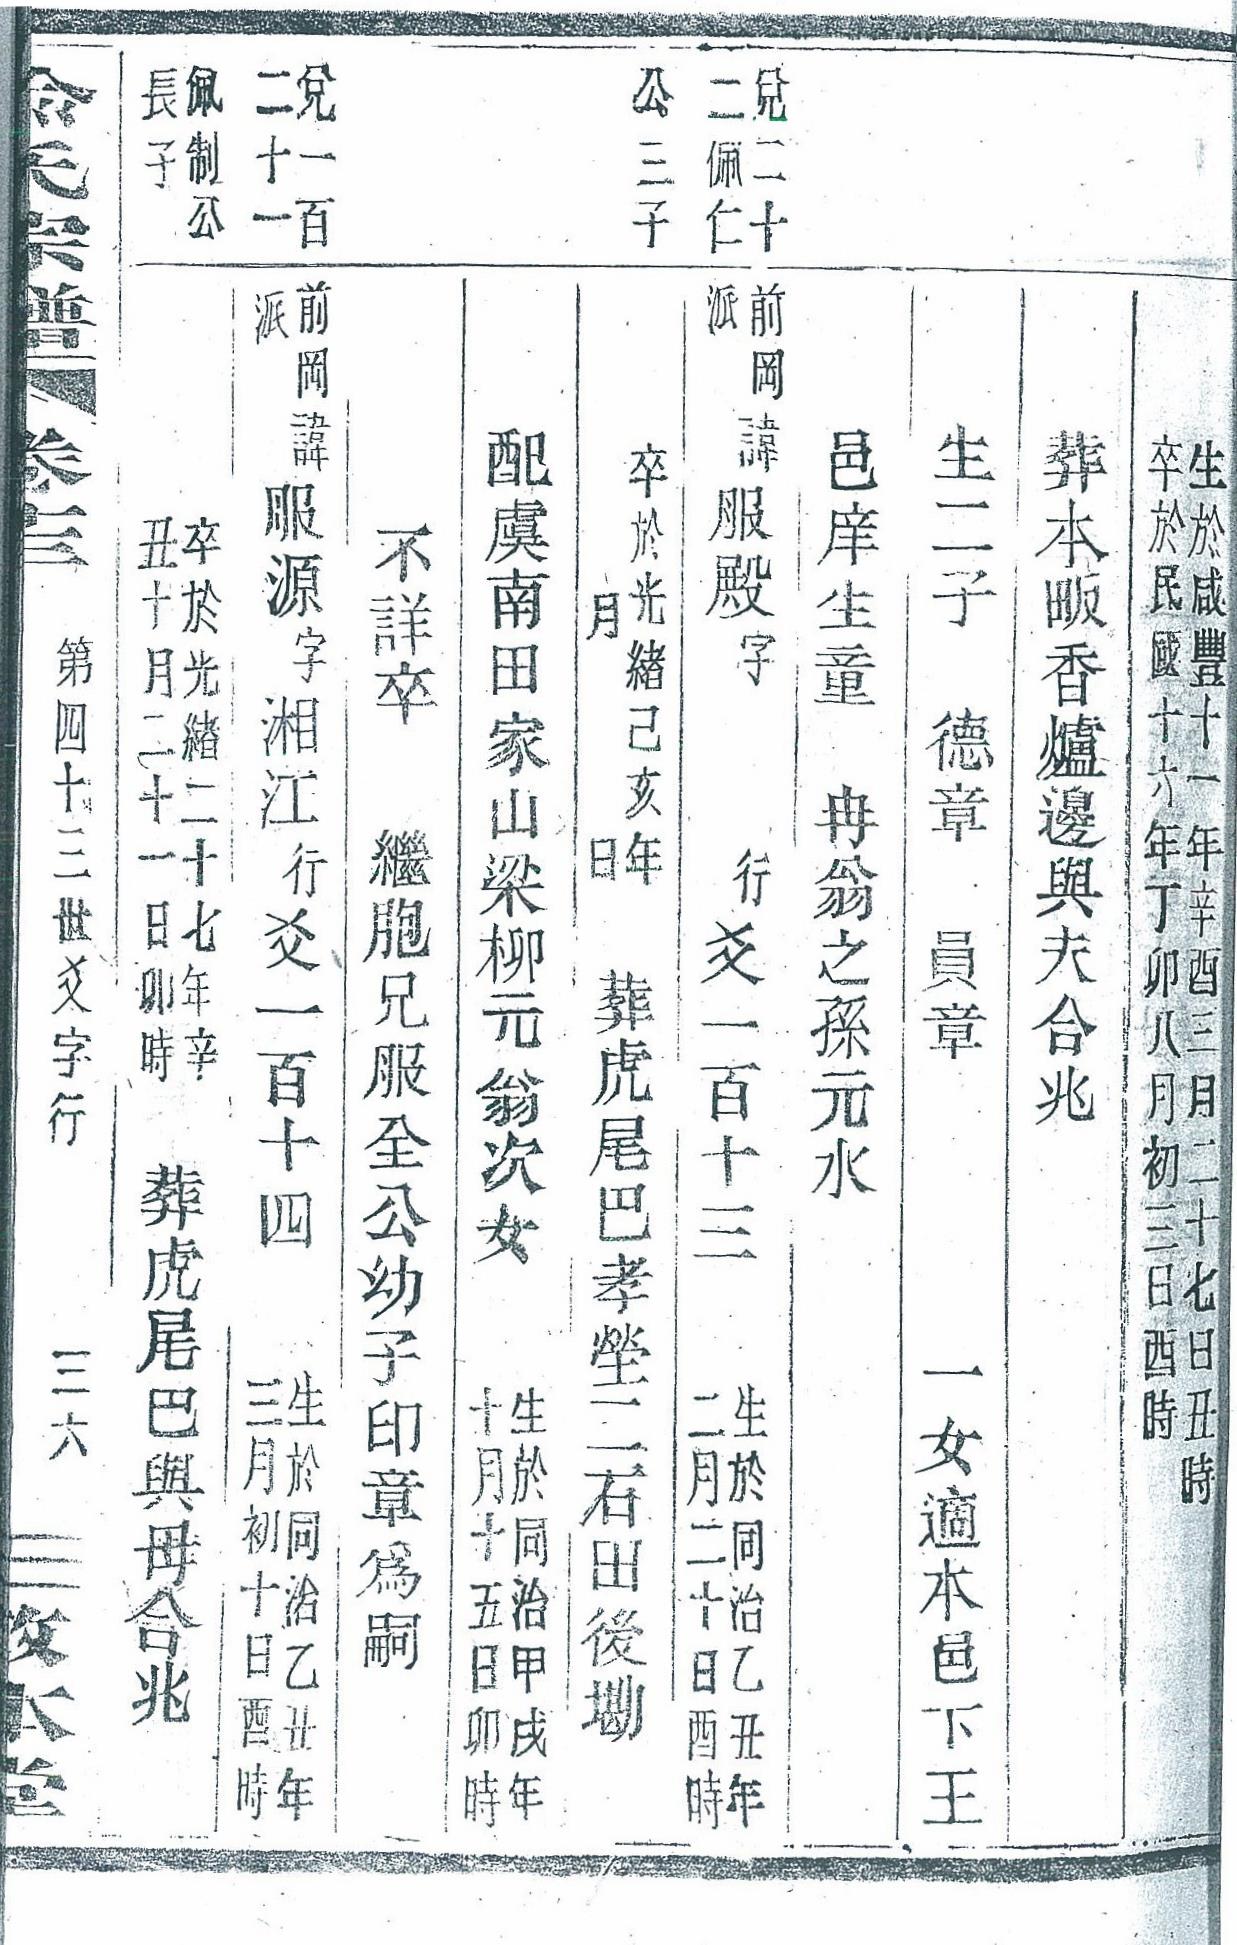 生於咸豐十一年辛酉三月二十七日丑時
卒於民國十六年丁卯八月初三日酉時
葬本畈香爐邊與夫合兆
生二子 德章 員章 一女適本邑下王
邑庠生童 冉翁之孫元水
兌二十
二佩仁
公三子
前岡
派
諱服殿字 行爻一百十三
生於同治乙丑年
二月二十日酉時
卒於光緒己亥年
月 日
葬虎尾巴孝塋二石出後墈
配虞南田家山梁柳元翁次女
生於同治甲戌年
十月十五日卯時
不詳卒 繼胞兄服全公幼子印章為嗣
兌一百
二十一
佩制公
長子
前岡
派
諱服源字湘江行爻一百十四
生於同治乙丑年
三月初十日酉時
卒於光緒二十七年辛
丑十月二十一日卯時
葬虎尾巴與毌合兆
氏宗譜 卷三 第四十三世爻字行 三六 本堂